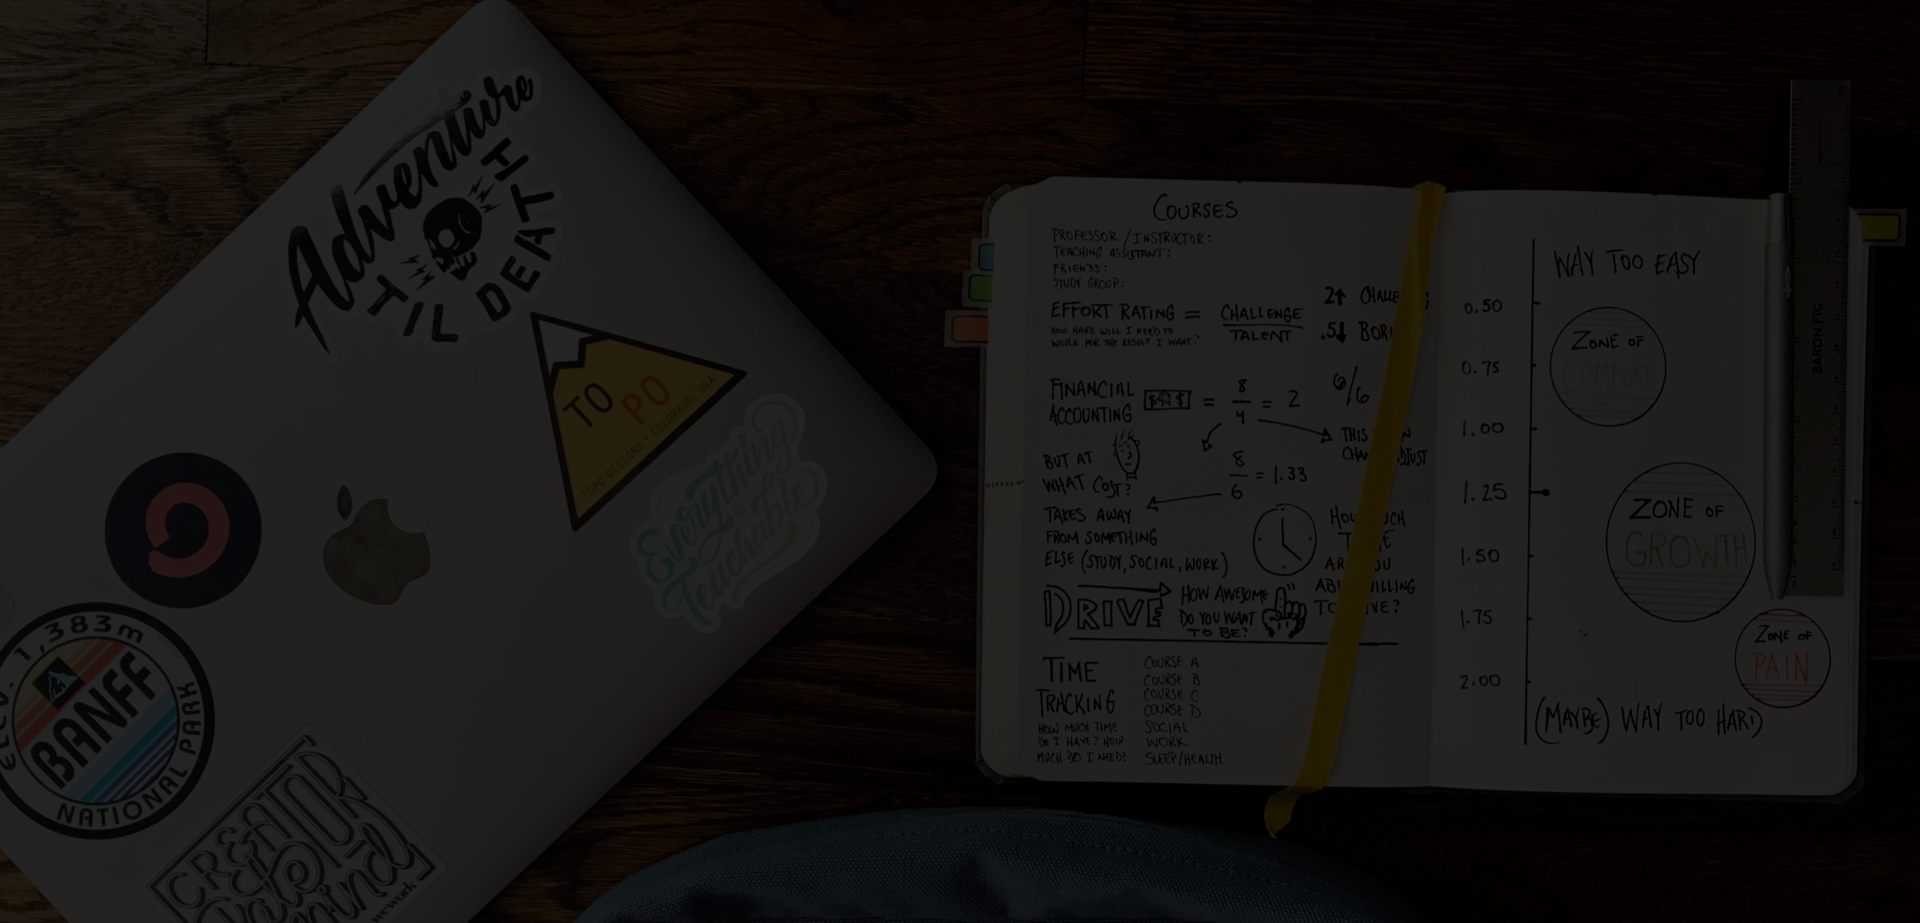 Adventure
TIL DEATH
TO
PO
TOPO DESIGNS • COLORADO, USA
Everything
is
Teachable
ELEV. 1,383m
BANFF
NATIONAL PARK
CREATOR
mind
wework
COURSES
PROFESSOR / INSTRUCTOR:
TEACHING ASSISTANT:
FRIENDS:
STUDY GROUP:
EFFORT RATING = CHALLENGE
TALENT
HOW HARD WILL I NEED TO
WORK FOR THE RESULT I WANT?
2↑
.5↓
FINANCIAL
ACCOUNTING
$ $ = 8/4 = 2
6/6
THIS
BUT AT
WHAT COST?
8/6 = 1.33
TAKES AWAY
FROM SOMETHING
ELSE (STUDY, SOCIAL, WORK)
TO
DRIVE
HOW AWESOME
DO YOU WANT
TO BE?
TIME
TRACKING
HOW MUCH TIME
DO I HAVE? HOW
MUCH DO I NEED!
COURSE A
COURSE B
COURSE C
COURSE D
SOCIAL
WORK
SLEEP/HEALTH
WAY TOO EASY
0.50
ZONE OF
COMFORT
0.75
1.00
1.25
ZONE OF
GROWTH
1.50
1.75
ZONE OF
PAIN
2.00
(MAYBE) WAY TOO HARD
BARON FIG